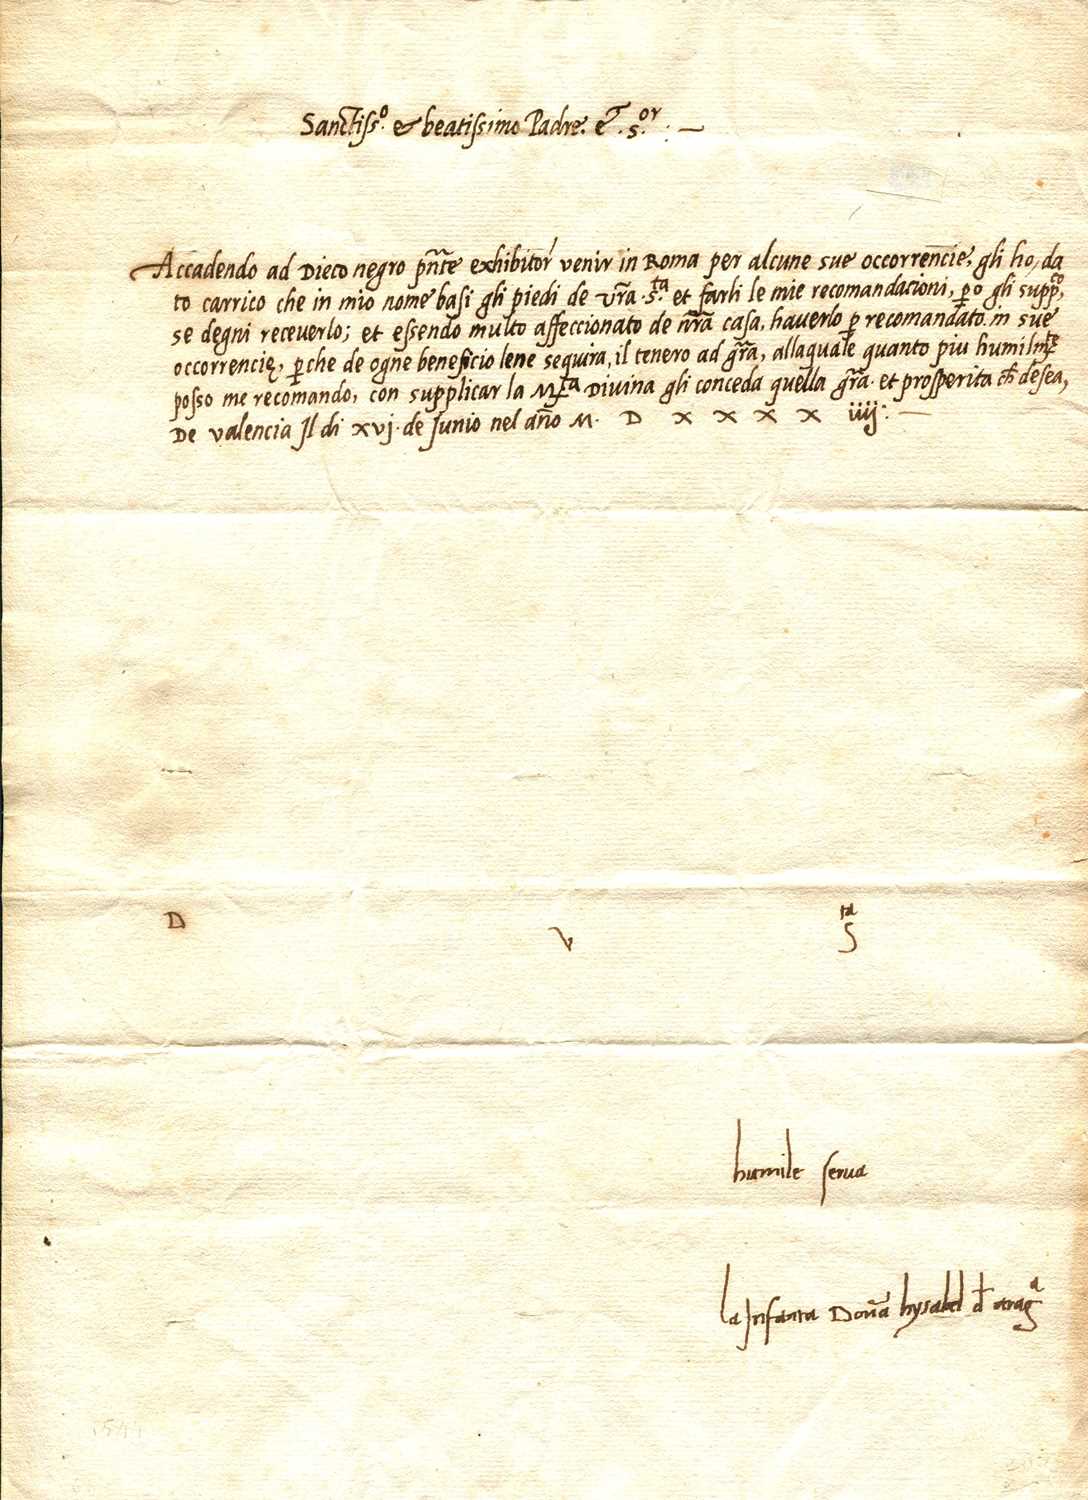 Sanctiss.º & beatissimo Padre. & .S.ᵒʳ : —
Accadendo ad Dieco negro p̃ñte exhibitor venir in Roma per alcune sue occorrencie, gli ho, da
to carrico che in mio nome basi gli piedi de vr̃a .S.ᵗᵃ et farli le mie recomandacioni, ꝑo gli suppᶜᵒ,
se degni receverlo; et essendo multo affeccionato de nr̃a casa, haverlo ꝑ recomandato in sue
occorrencię, ꝑche de ogne beneficio lene sequira, il tenero ad gr̃a, allaquale quanto piu humilmᵗᵉ
posso me recomando, con supplicar la M.ᵗᵃ Divina gli conceda quella gr̃a. et prosperita ch̃ desea,
De valencia Il di xvj. de Junio nel año M. D x x x x iiij: —
D v Sᵗᵃ
humile serva
la Infanta Doña hysabel đ aragᵃ
1544